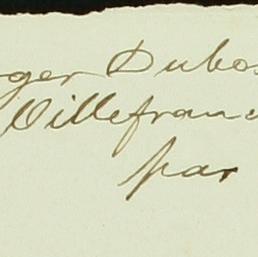 ger Dubos
Villefran
par